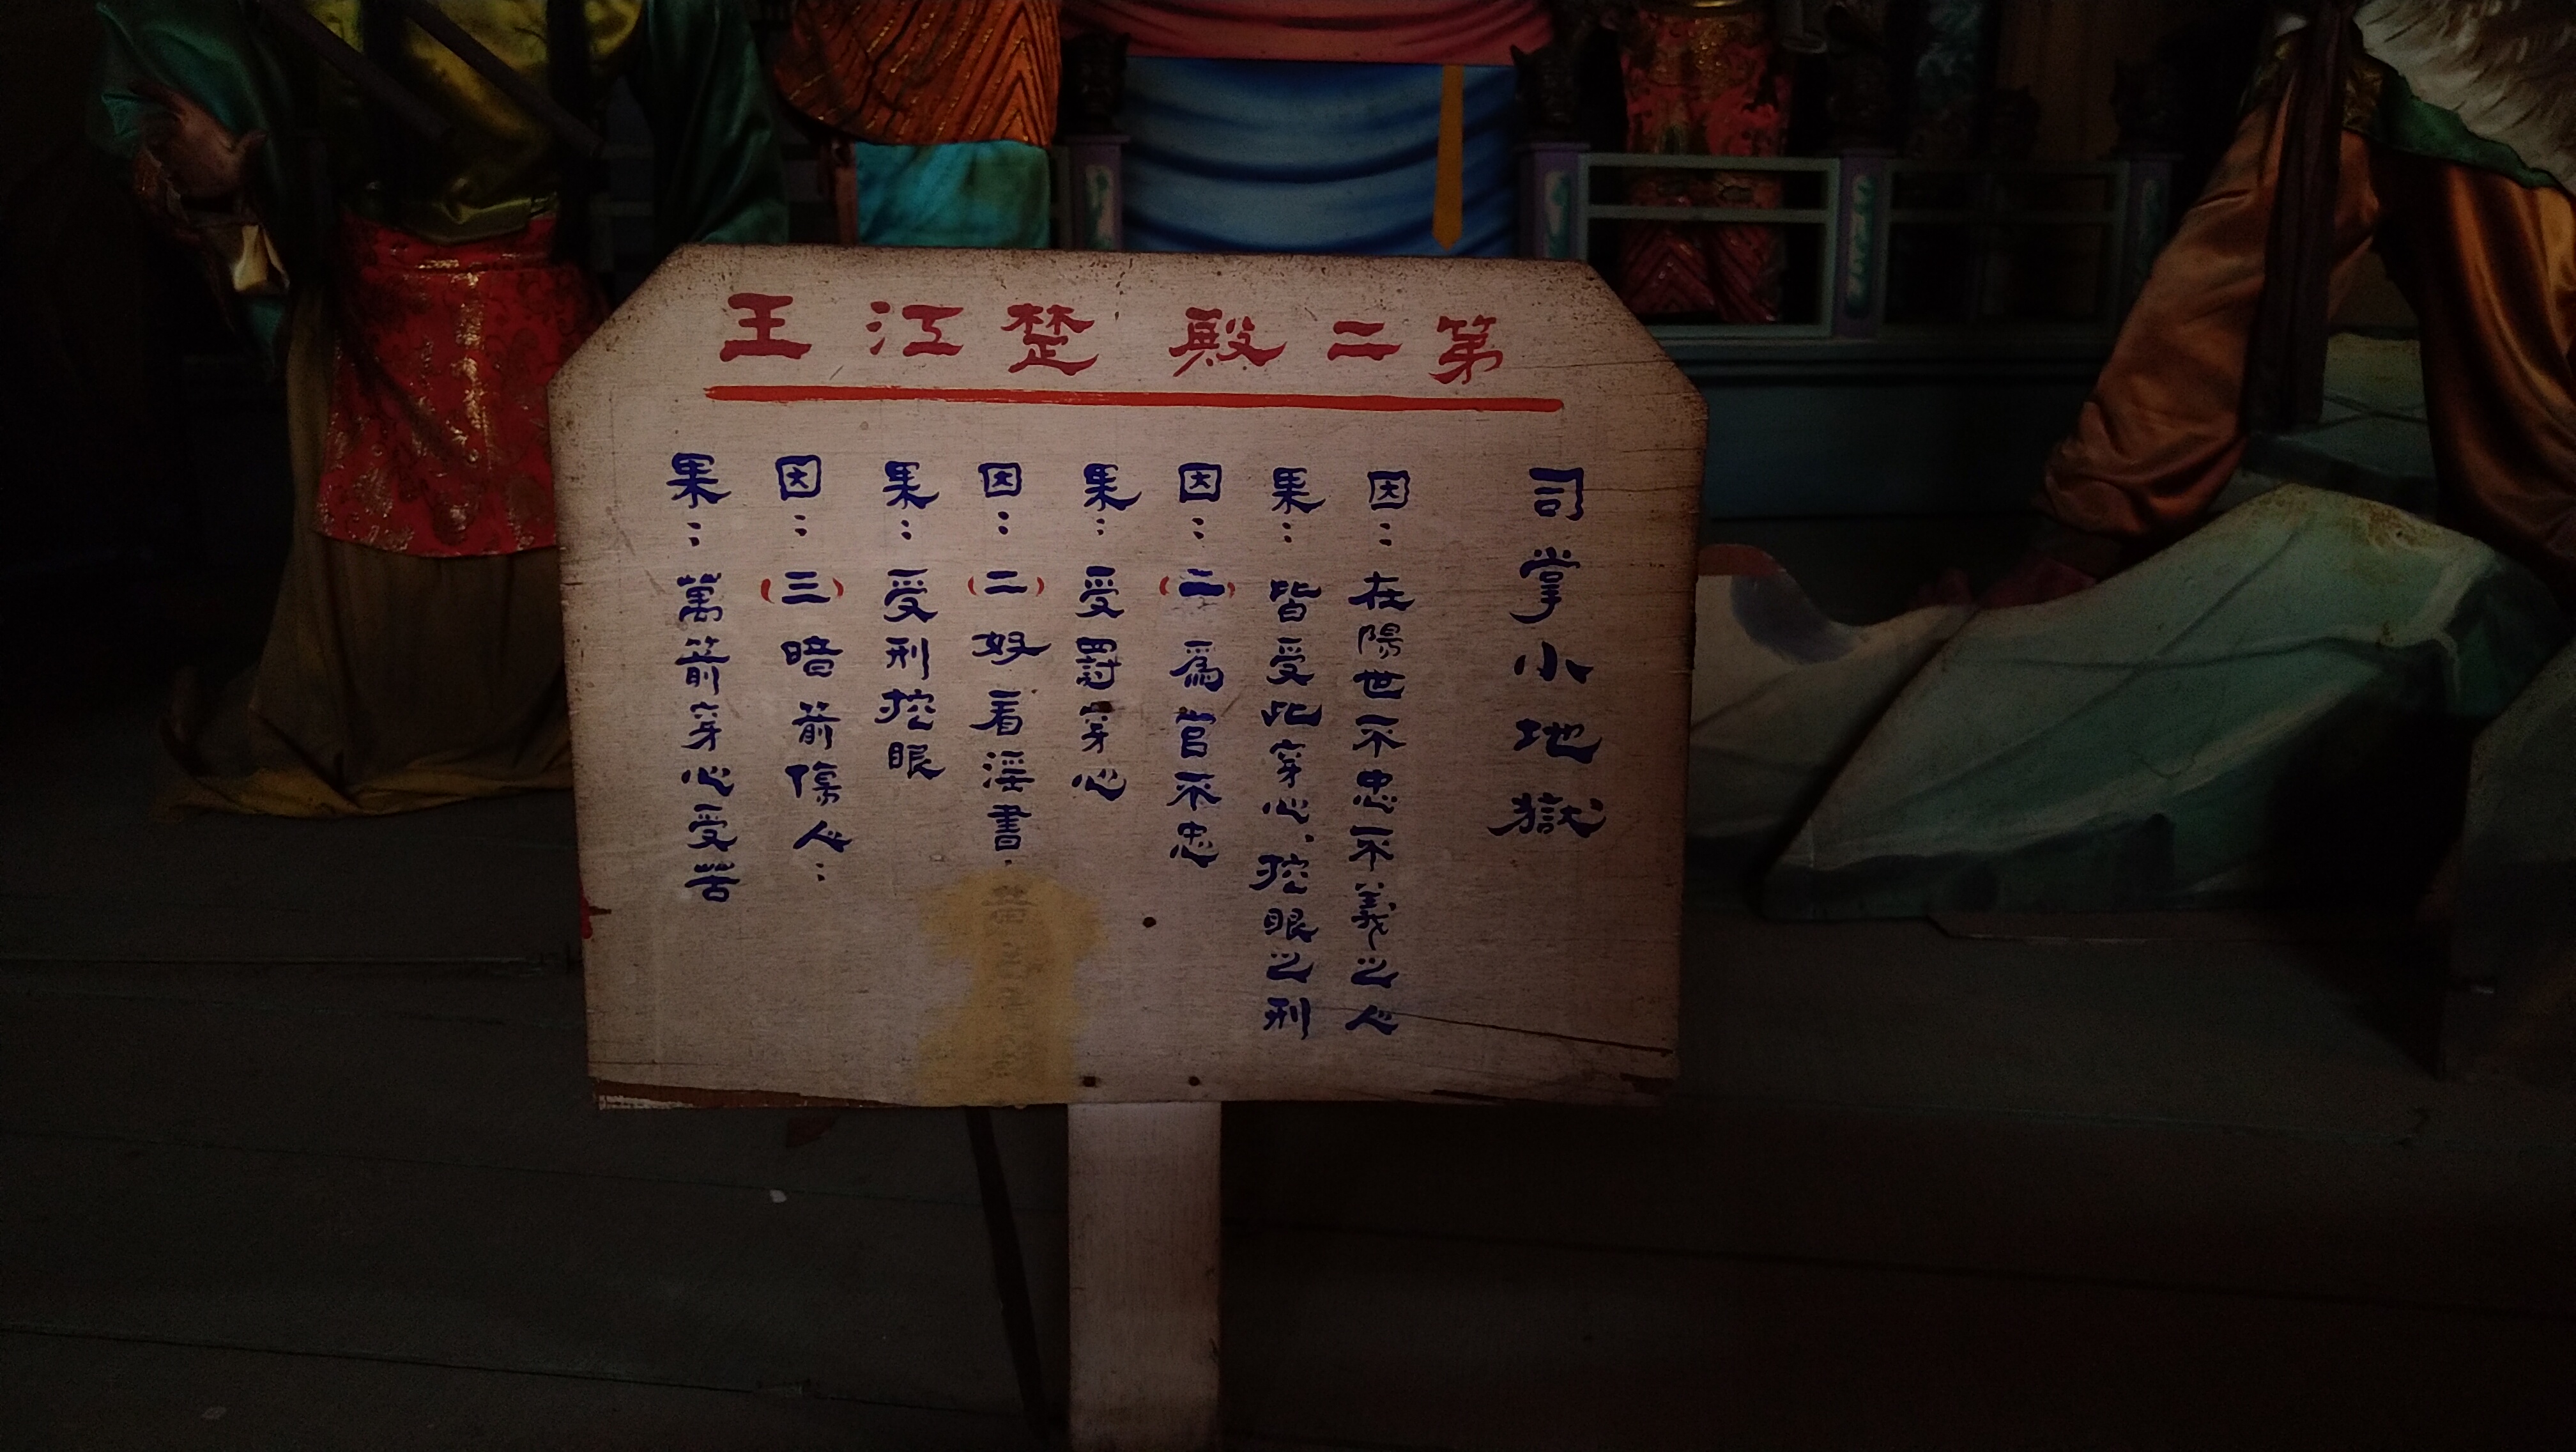 第二殿 楚江王
司掌小地獄
因：在陽世不忠不義之人
果：皆受此穿心、挖眼之刑
因：(二)為官不忠
果：受罰穿心
因：(二)好看淫書，
果：受刑挖眼
因：(三)暗箭傷人：
果：萬箭穿心受苦